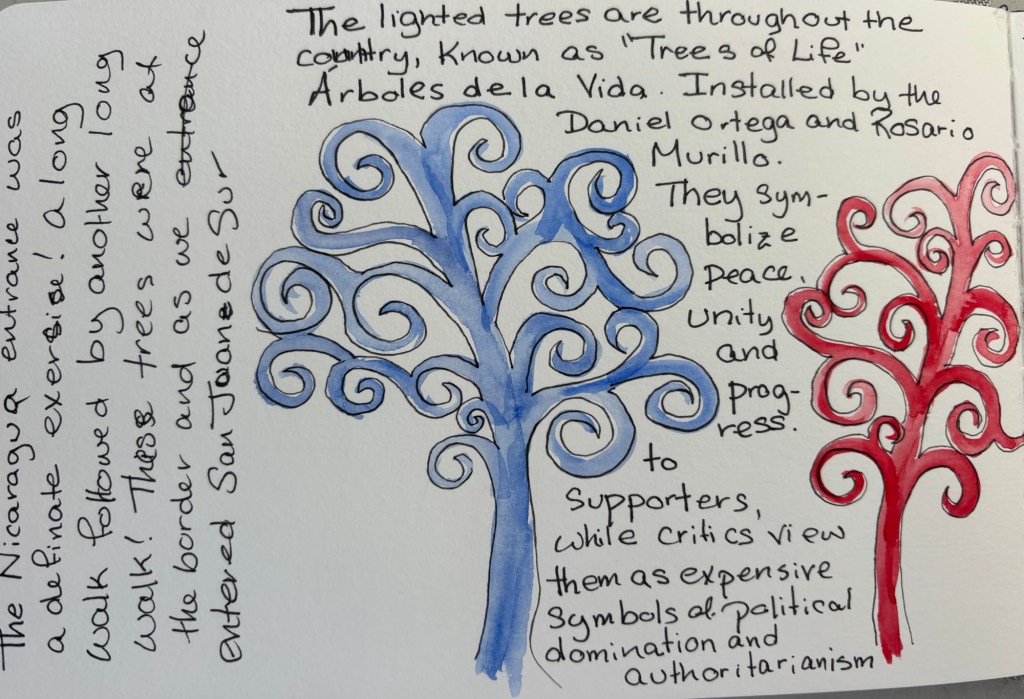 The Nicaragua entrance was
a definate exersise! a long
walk followed by another long
walk! These trees were at
the border and as we entrance
entered San Juan de Sur
The lighted trees are throughout the
country, Known as "Trees of Life"
Árboles de la Vida. Installed by the
Daniel Ortega and Rosario
Murillo.
They sym-
bolize
peace,
unity
and
prog-
ress.
to
supporters,
while critics view
them as expensive
symbols of political
domination and
authoritarianism